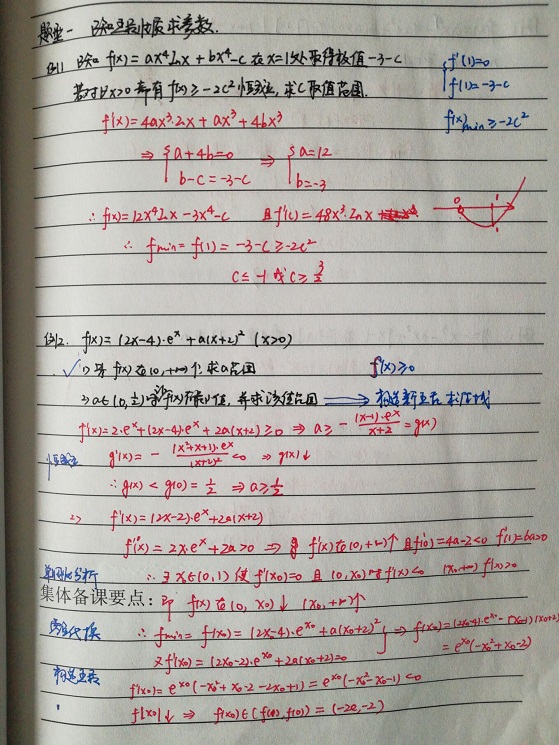 题型一 已知函数性质求参数.
例1 已知 f(x)=ax⁴lnx+bx⁴-c 在x=1处取得极值-3-c
若对∀x>0都有 f(x)≥-2c²恒成立, 求c取值范围.
{f'(1)=0
f(1)=-3-c
f(x)min≥-2c²
f'(x)=4ax³·lnx+ax³+4bx³
⇒ {a+4b=0 ⇒ {a=12
b-c=-3-c b=-3
∴ f(x)=12x⁴lnx-3x⁴-c 且f'(x)=48x³·lnx
∴ fmin=f(1)=-3-c≥-2c²
c≤-1或c≥3/2
例2. f(x)=(2x-4)·eˣ+a(x+2)² (x>0)
✓ 1) 若f(x)在(0,+∞)↑求a范围 f'(x)≥0
2) a∈(0,1/2)时f(x)有最小值, 并求该值范围 → 构造新函数求值域
f'(x)=2·eˣ+(2x-4)·eˣ+2a(x+2)≥0 ⇒ a≥-(x-1)·eˣ/(x+2)=g(x)
恒成立 g'(x)=-(x²+x+1)·eˣ/(x+2)²<0 ⇒ g(x)↓
∴ g(x)<g(0)=1/2 ⇒ a≥1/2
2) f'(x)=(2x-2)·eˣ+2a(x+2)
f''(x)=2x·eˣ+2a>0 ⇒ f'(x)在(0,+∞)↑ 且f'(0)=4a-2<0 f'(1)=6a>0
单调性分析 ∴ ∃x₀∈(0,1) 使f'(x₀)=0 且 (0,x₀)时f'(x)<0 (x₀,+∞) f'(x)>0
集体备课要点: 即 f(x)在(0,x₀)↓ (x₀,+∞)↑
代换 ∴ fmin=f(x₀)=(2x₀-4)·eˣ⁰+a(x₀+2)² } ⇒ f(x₀)=(2x₀-4)·eˣ⁰-(x₀-1)(x₀+2)eˣ⁰
又f'(x₀)=(2x₀-2)·eˣ⁰+2a(x₀+2)=0 =eˣ⁰(-x₀²+x₀-2)
构造函数 f'(x₀)=eˣ⁰(-x₀²+x₀-2-2x₀+1)=eˣ⁰(-x₀²-x₀-1)<0
f(x₀)↓ ⇒ f(x₀)∈(f(1),f(0))=(-2e,-2)